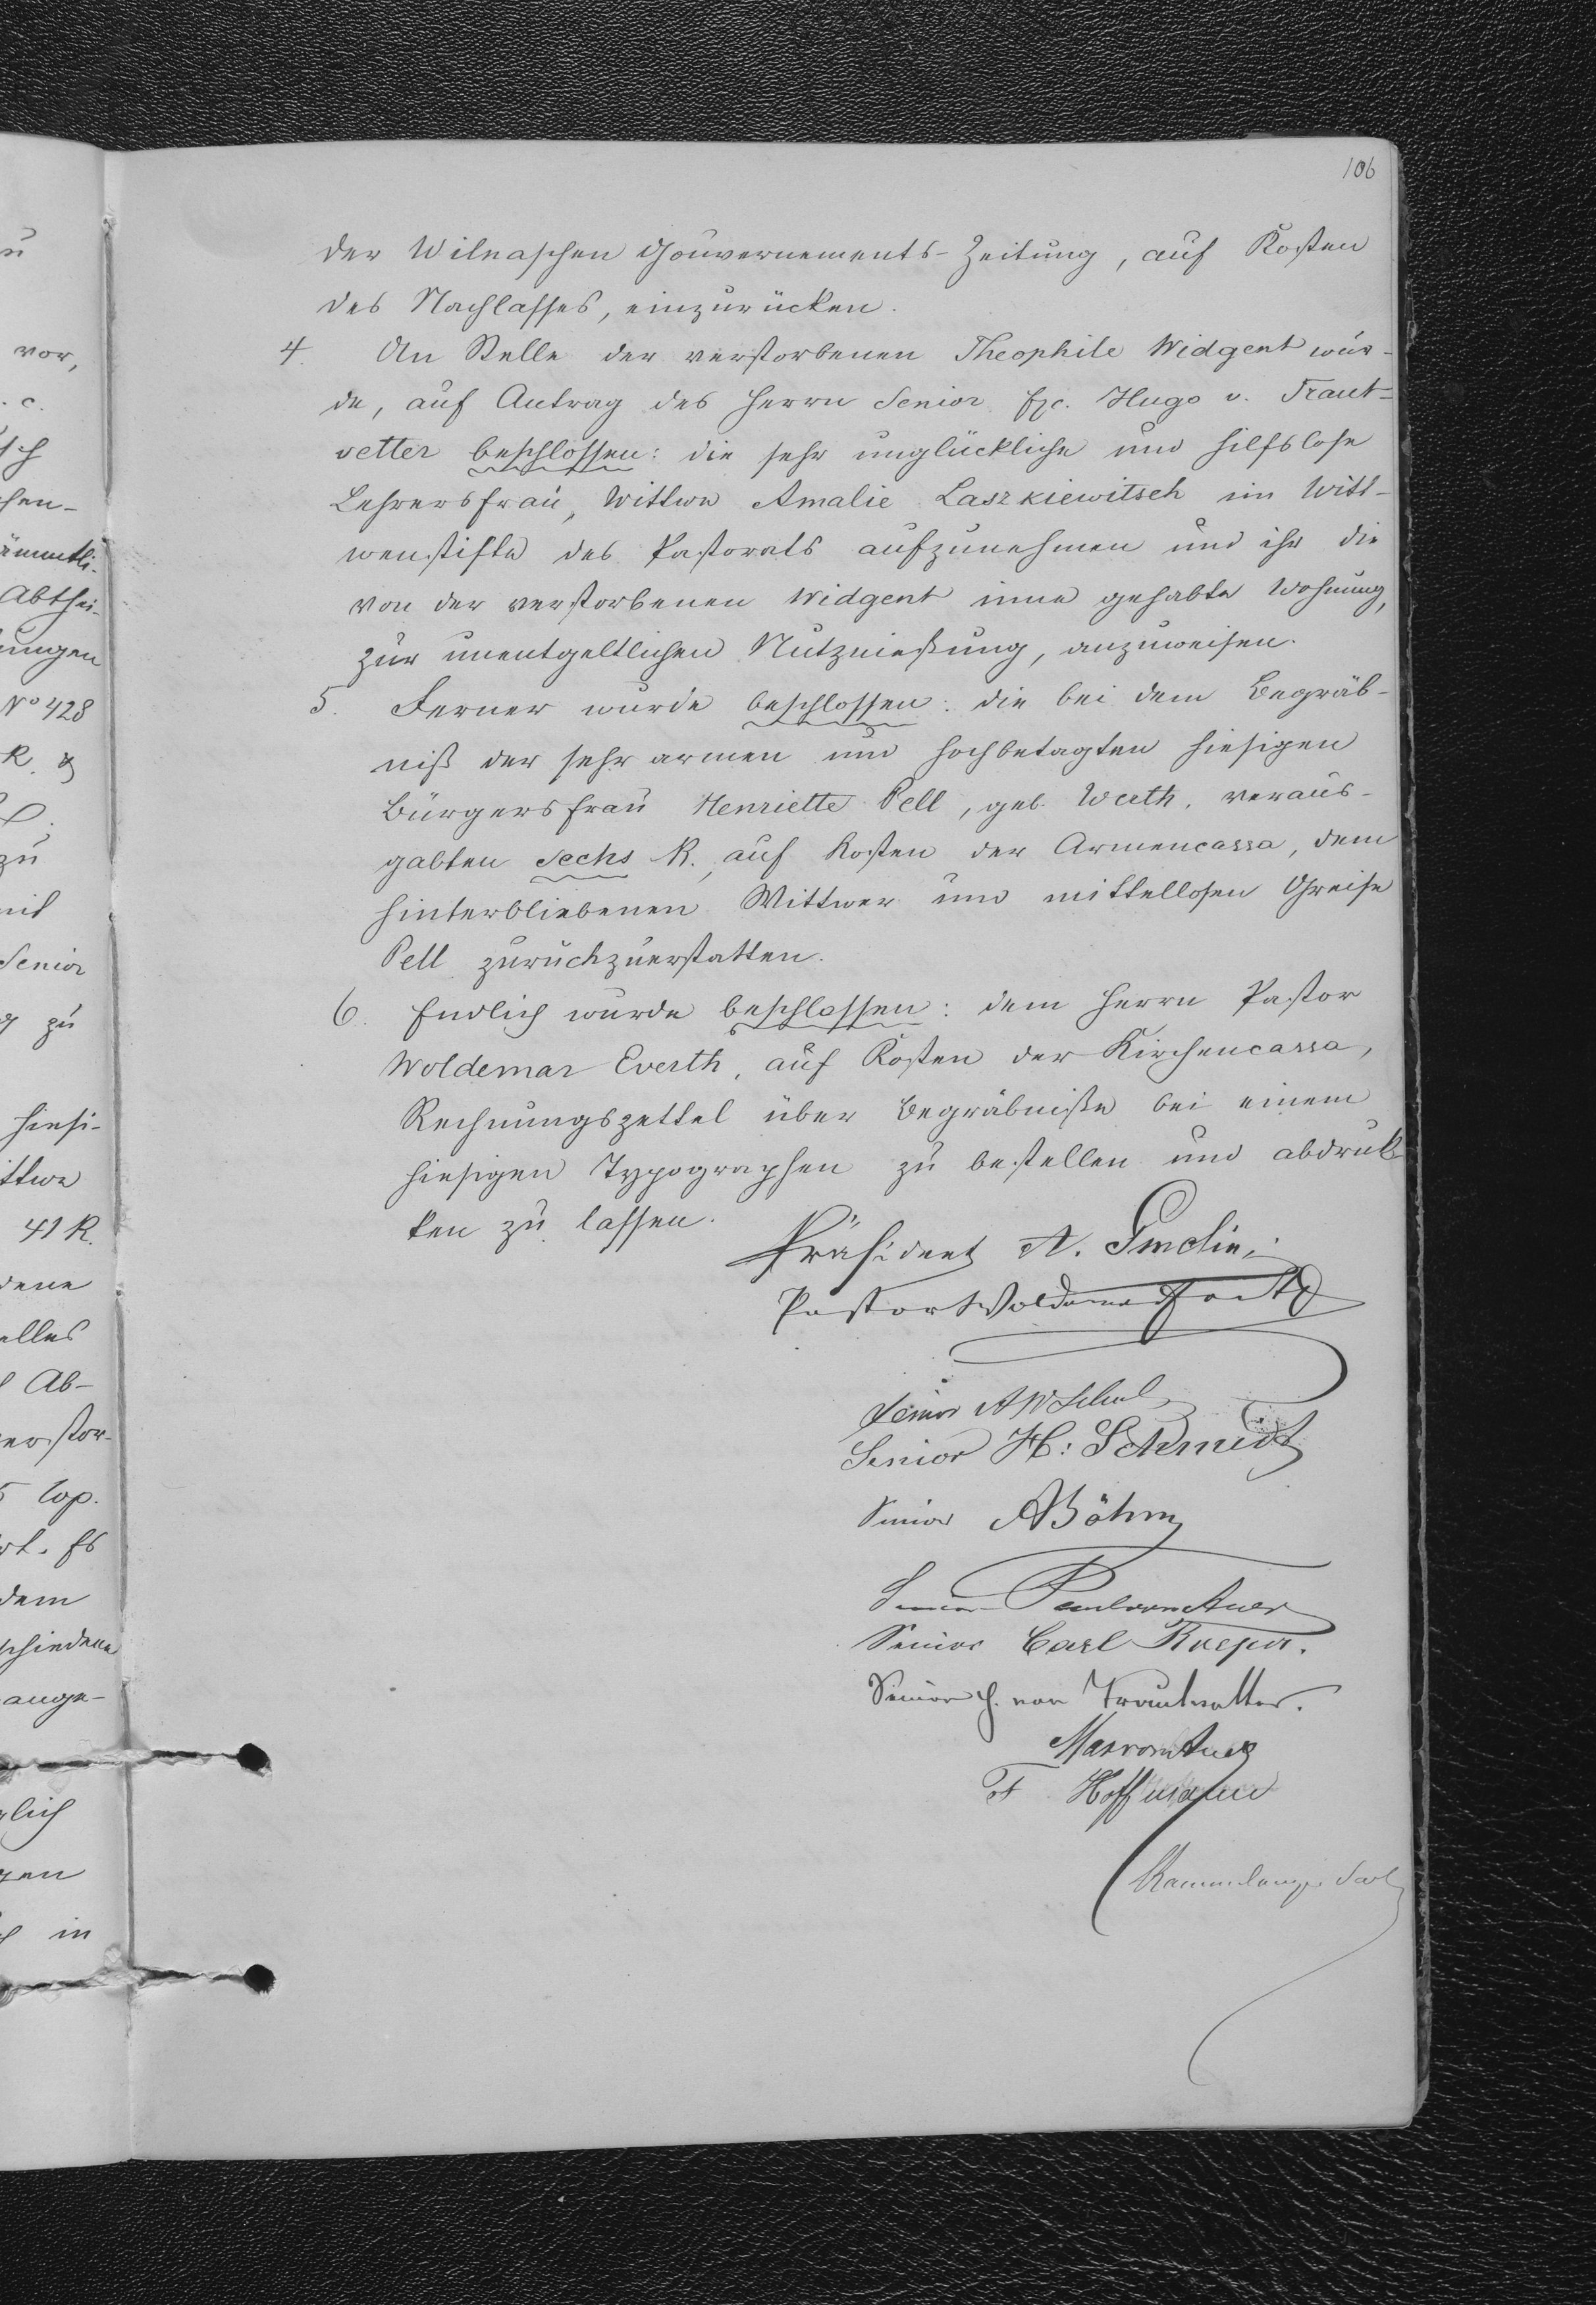 106
der Wilnaschen Gouvernements-Zeitung, auf Kosten
des Nachlasses, einzurücken.
4. An Stelle der verstorbenen Theophile Widgent wur-
de, auf Antrag des Herrn Senior Exc. Hugo v. Traut-
vetter beschlossen: die sehr unglückliche und hilfslose
Lehrersfrau, Wittwe Amalie Laszkiewitsch im Witt-
wenstifte des Pastorats aufzunehmen und ihr die
von der verstorbenen Widgent inne gehabte Wohnung,
zur unentgeltlichen Nutznießung, anzuweisen.
5. Ferner wurde beschlossen: die bei dem Begräb-
niß der sehr armen und hochbetagten hiesigen
Bürgersfrau Henriette Pell, geb. Werth, veraus-
gabten sechs R., auf Kosten der Armencassa, dem
hinterbliebenen Wittwer und mittellosen Greise
Pell zurückzuerstatten.
6. Endlich wurde beschlossen: dem Herrn Pastor
Woldemar Everth, auf Kosten der Kirchencassa,
Rechnungszettel über Begräbniße bei einem
hiesigen Typographen zu bestellen und abdruk-
ken zu lassen.
Präsident A. Gmelin
Pastor Woldemar Everth
Senior A W
Senior H: Schmidt
Senior A Böhm
Senior Paul vom Auer
Senior Carl
Senior H. von Trautvetter.
Max vom Auer
F Hoffmann
vor,
c.
No 428
R.
zu
Senior
zu
hiesi-
41 R.
alles
Ab-
Cop.
dem
ange-
in